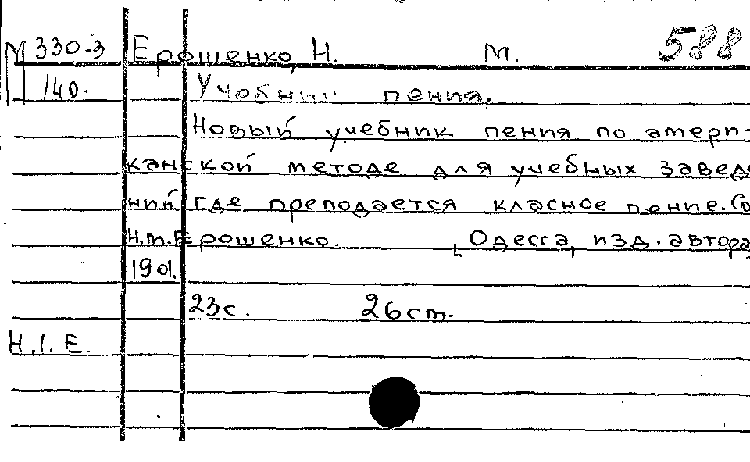 М 330-3 Ерошенко, Н. М. 588
140. Учебник пения.
Новый учебник пения по амери-
канской методе для учебных заведе
ний где преподается класное пение. Со
Н.М.Ерошенко. [Одесса, изд. автора
1901.
23с. 26ст.
Н.І.Е.